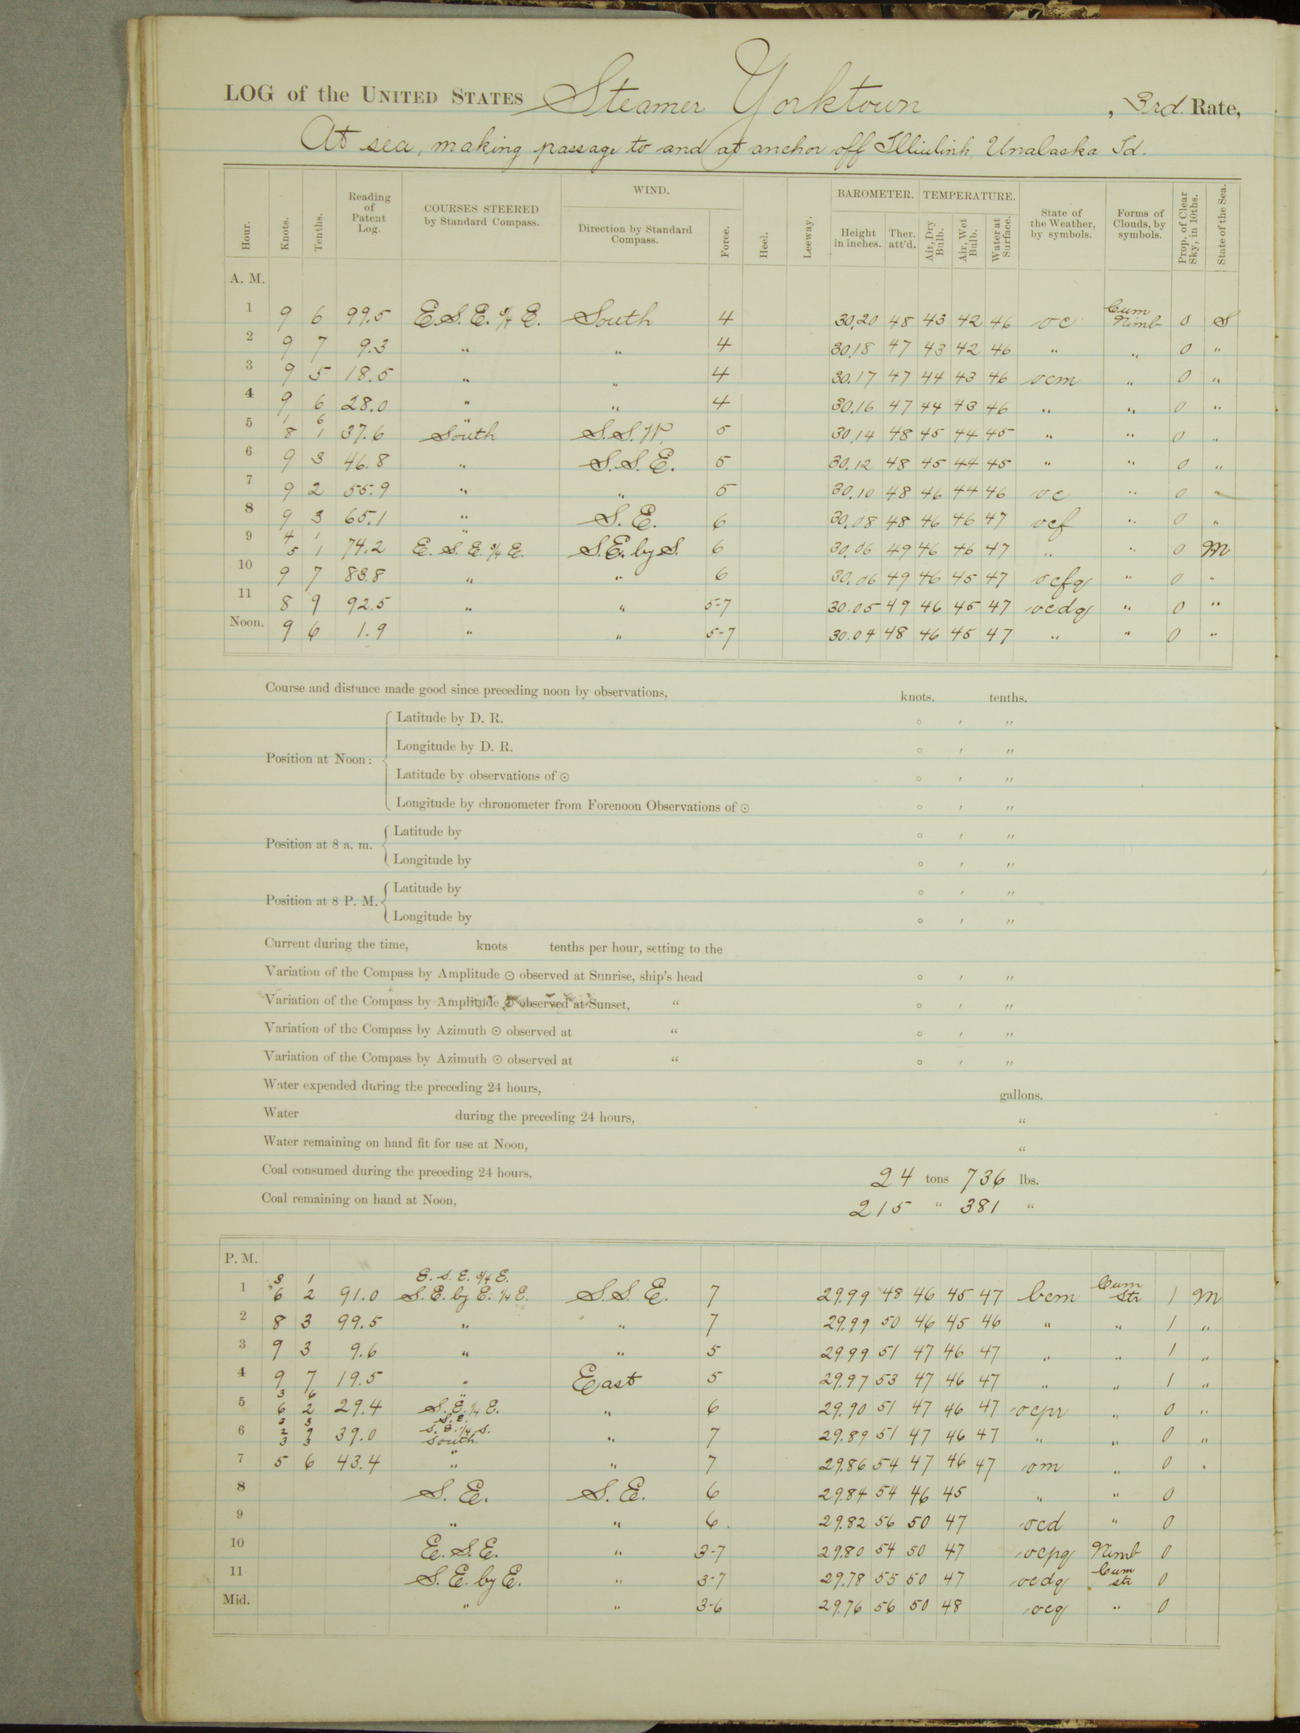 LOG of the UNITED STATES Steamer Yorktown, 3rd. Rate,
At sea, making passage to and at anchor off Illiulink, Unalaska Id.
Hour. Knots. Tenths. Reading of Patent Log. COURSES STEERED by Standard Compass. WIND. Direction by Standard Compass. Force. Heel. Leeway. BAROMETER. Height in inches. Ther. att'd. TEMPERATURE. Air, Dry Bulb. Air, Wet Bulb. Water at Surface. State of the Weather, by symbols. Forms of Clouds, by symbols. Prop. of Clear Sky, in 10ths. State of the Sea.
A. M.
1 9 6 99.5 E.S.E. ¾ E. South 4 30.20 48 43 42 46 oc Cum Nimb 0 S
2 9 7 9.3 " " 4 30.18 47 43 42 46 " " 0 "
3 9 5 18.5 " " 4 30.17 47 44 43 46 ocm " 0 "
4 9 6 28.0 " " 4 30.16 47 44 43 46 " " 0 "
5 1 6 8 1 37.6 " South S.S.W. 5 30.14 48 45 44 45 " " 0 "
6 9 3 46.8 " S.S.E. 5 30.12 48 45 44 45 " " 0 "
7 9 2 55.9 " " 5 30.10 48 46 44 46 oc " 0 "
8 9 3 65.1 " S.E. 6 30.08 48 46 46 47 ocf " 0 "
9 4 1 5 1 74.2 " E.S.E. ¾ E. S.E. by S. 6 30.06 49 46 46 47 " " 0 M
10 9 7 83.8 " " 6 30.06 49 46 45 47 ocfq " 0 "
11 8 9 92.5 " " 5-7 30.05 49 46 45 47 ocdq " 0 "
Noon. 9 6 1.9 " " 5-7 30.04 48 46 45 47 " " 0 "
Course and distance made good since preceding noon by observations, knots. tenths.
Position at Noon:
Latitude by D. R. ° ′ ″
Longitude by D. R. ° ′ ″
Latitude by observations of ☉ ° ′ ″
Longitude by chronometer from Forenoon Observations of ☉ ° ′ ″
Position at 8 a. m.
Latitude by ° ′ ″
Longitude by ° ′ ″
Position at 8 P. M.
Latitude by ° ′ ″
Longitude by ° ′ ″
Current during the time, knots tenths per hour, setting to the
Variation of the Compass by Amplitude ☉ observed at Sunrise, ship's head ° ′ ″
Variation of the Compass by Amplitude ☉ observed at Sunset, " ° ′ ″
Variation of the Compass by Azimuth ☉ observed at " ° ′ ″
Variation of the Compass by Azimuth ☉ observed at " ° ′ ″
Water expended during the preceding 24 hours, gallons.
Water during the preceding 24 hours, "
Water remaining on hand fit for use at Noon, "
Coal consumed during the preceding 24 hours, 24 tons 736 lbs.
Coal remaining on hand at Noon, 215 " 381 "
P. M.
1 3 1 6 2 91.0 E.S.E. ¾ E. S.E. by E. ¼ E. S.S.E. 7 29.99 48 46 45 47 bcm Cum Str 1 M
2 8 3 99.5 " " 7 29.99 50 46 45 46 " " 1 "
3 9 3 9.6 " " 5 29.99 51 47 46 47 " " 1 "
4 9 7 19.5 " East 5 29.97 53 47 46 47 " " 1 "
5 3 6 6 2 29.4 " S.E. ¼ E. " 6 29.90 51 47 46 47 ocpr " 0 "
6 3 2 9 3 3 39.0 S.E. S.E. ¼ S. South " 7 29.89 51 47 46 47 " " 0 "
7 5 6 43.4 " " 7 29.86 54 47 46 47 om " 0 "
8 S.E. S.E. 6 29.84 54 46 45 " " 0
9 " " 6 29.82 56 50 47 ocd " 0
10 E.S.E. " 3-7 29.80 54 50 47 ocpq Nimb 0
11 S.E. by E. " 3-7 29.78 55 50 47 ocdq Cum str 0
Mid. " " 3-6 29.76 56 50 48 ocq " 0